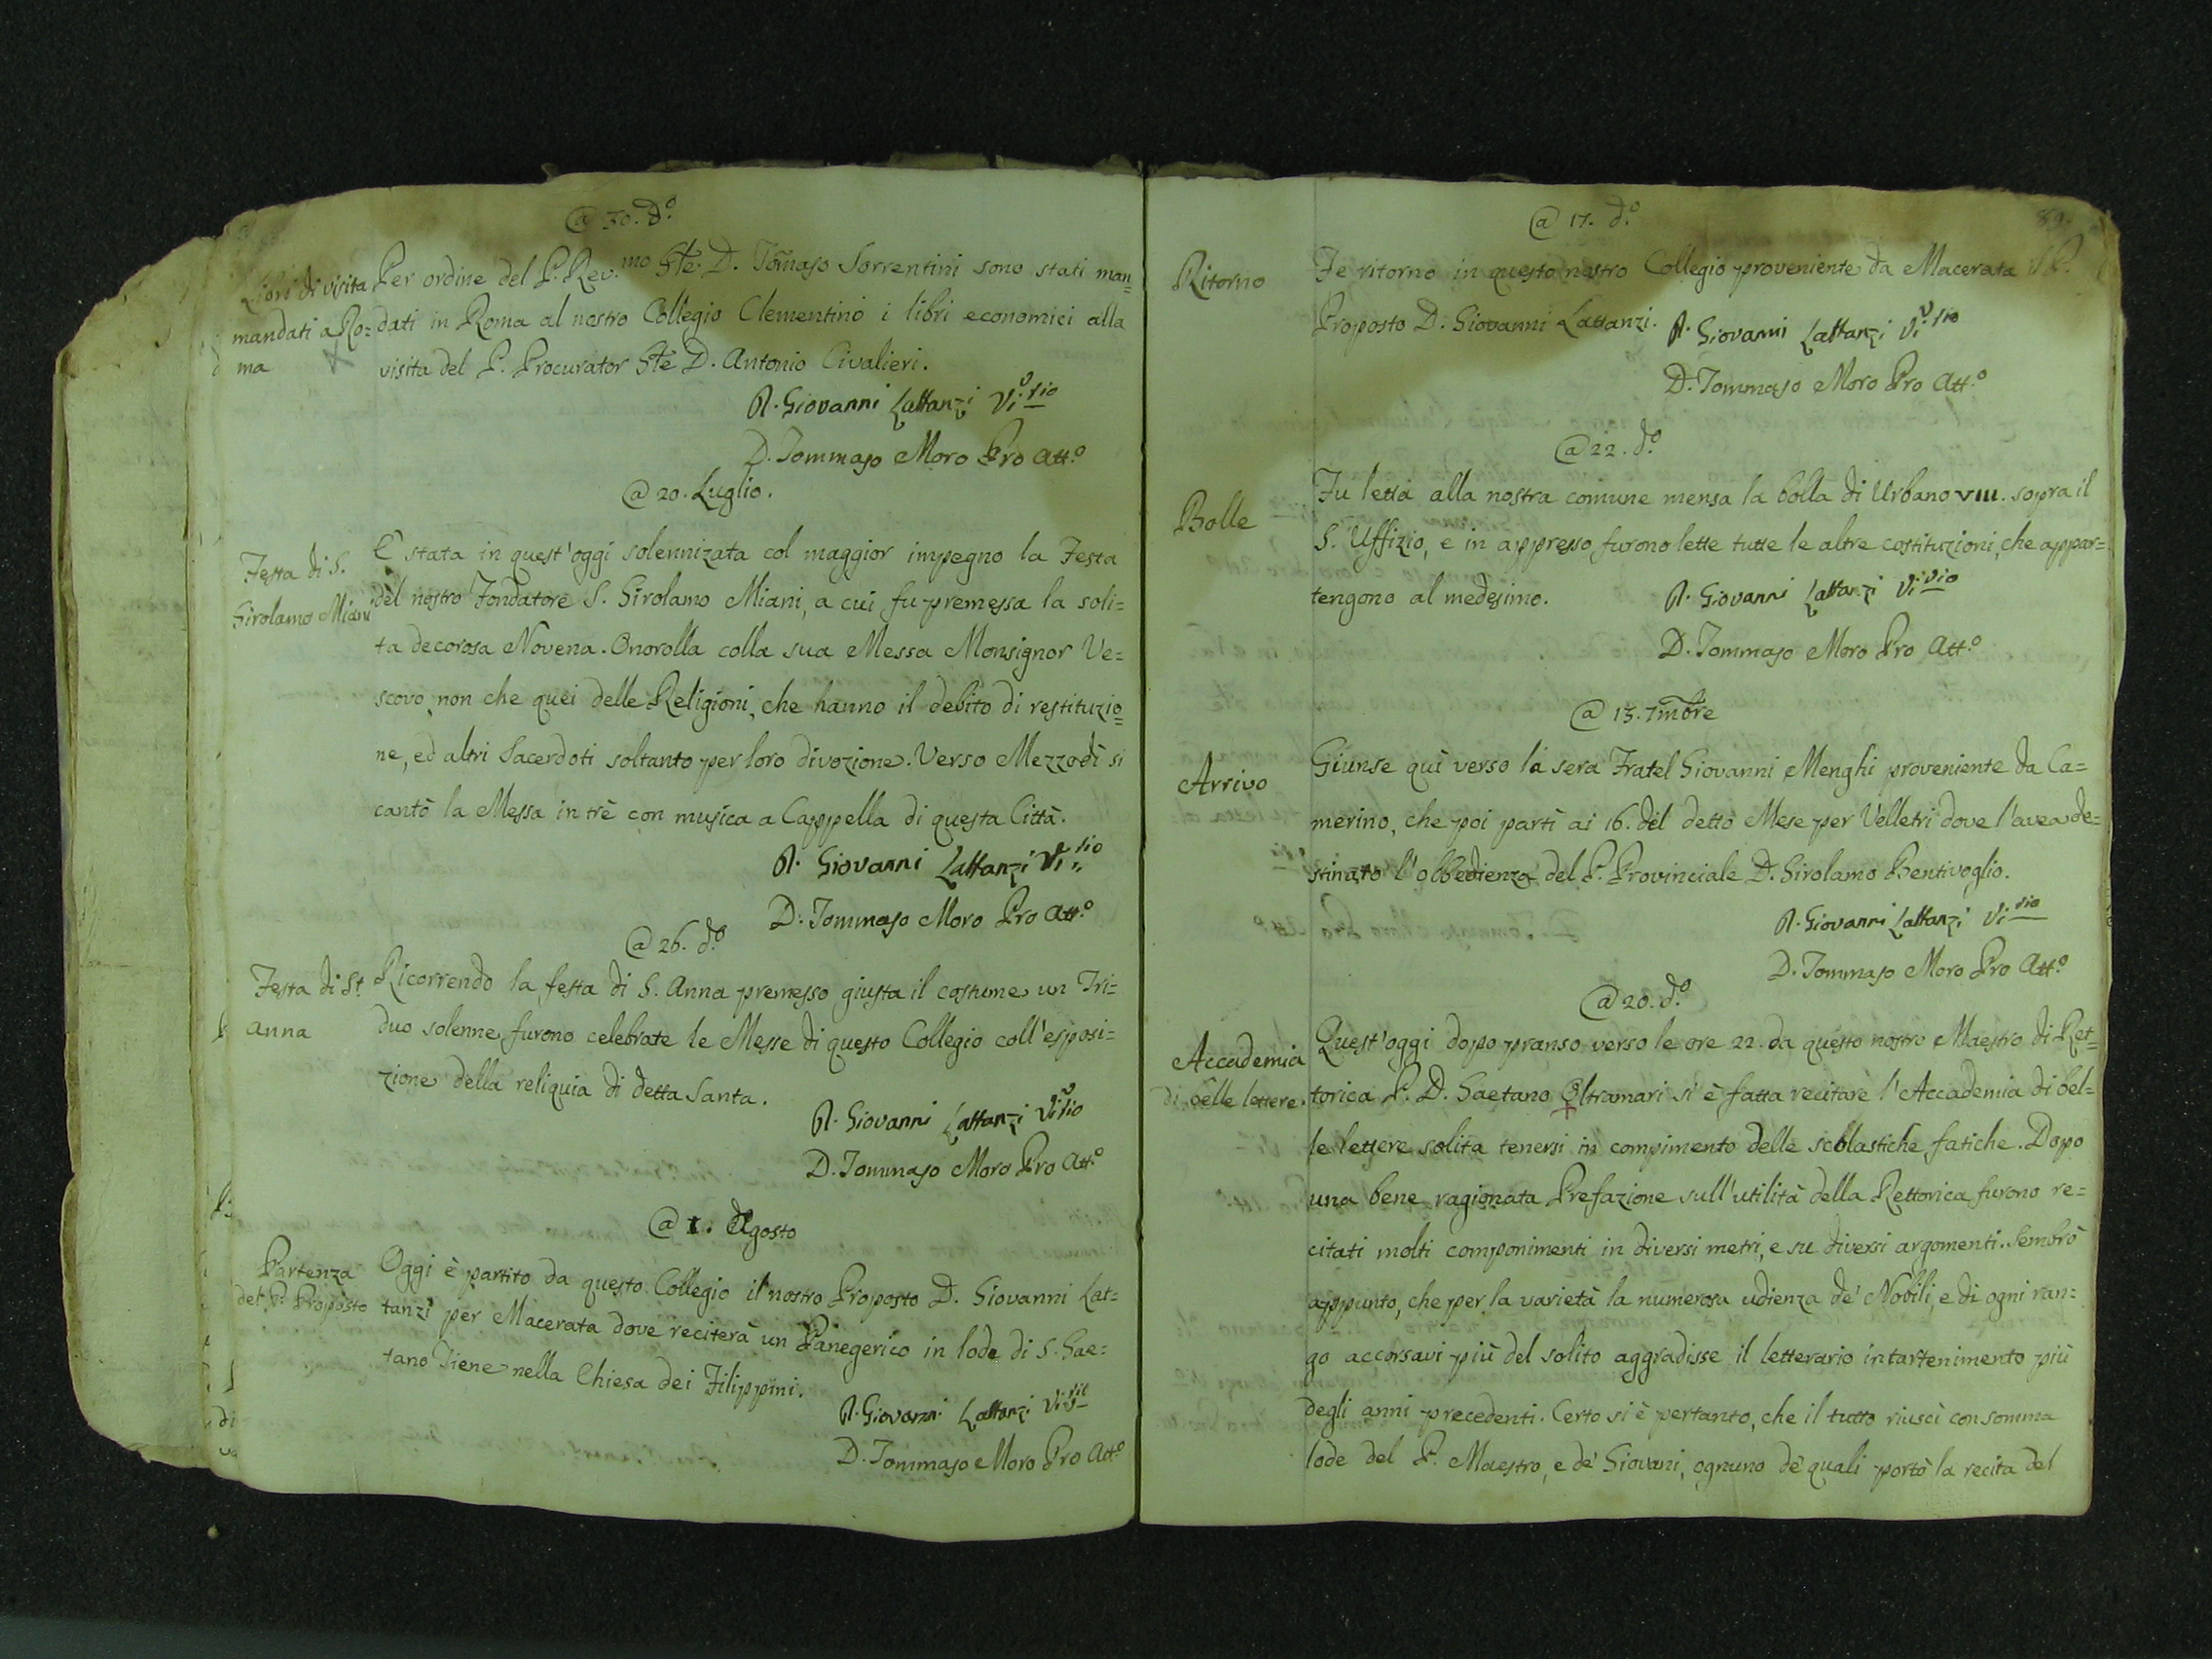 @ 30. d.o
Libri di visita
mandati a Ro=
ma
Per ordine del P. Rev.mo Ste. D. Tomaso Sorrentini sono stati man=
dati in Roma al nostro Collegio Clementino i libri economici alla
visita del P. Procurator Ste D. Antonio Civalieri.
P. Giovanni Lattanzi
D. Tommaso Moro Pro Att.o
@ 20. Luglio.
Festa di S.
Girolamo Miani
E' stata in quest'oggi solennizata col maggior impegno la Festa
del nostro Fondatore S. Girolamo Miani, a cui fu premessa la soli=
ta decorosa Novena. Onorolla colla sua Messa Monsignor Ve=
scovo, non che quei delle Religioni, che hanno il debito di restituzio=
ne, ed altri Sacerdoti soltanto per loro divozione. Verso Mezzodì si
cantò la Messa in trè con musica a Cappella di questa Città.
P. Giovanni Lattanzi
D. Tommaso Moro Pro Att.o
@ 26. d.o
Festa di St.
Anna
Ricorrendo la festa di S. Anna premesso giusta il costume un Tri=
duo solenne, furono celebrate le Messe di questo Collegio coll'esposi=
zione della reliquia di detta Santa.
P. Giovanni Lattanzi
D. Tommaso Moro Pro Att.o
@ 1. Agosto
Partenza
del P. Proposto
Oggi è partito da questo Collegio il nostro Proposto D. Giovanni Lat=
tanzi per Macerata dove reciterà un Panegerico in lode di S. Gae=
tano Tiene nella Chiesa dei Filippini.
P. Giovanni Lattanzi
D. Tommaso Moro Pro Att.o
89.
@ 17. d.o
Ritorno
Fe ritorno in questo nostro Collegio proveniente da Macerata il P.
Proposto D. Giovanni Lattanzi.
P. Giovanni Lattanzi
D. Tommaso Moro Pro Att.o
@ 22. d.o
Bolle
Fu letta alla nostra comune mensa la bolla di Urbano VIII. sopra il
S. Uffizio, e in appresso furono lette tutte le altre costituzioni, che appar=
tengono al medesimo.
P. Giovanni Lattanzi
D. Tommaso Moro Pro Att.o
@ 13. 7mbre
Arrivo
Giunse quì verso la sera Fratel Giovanni Menghi proveniente da Ca=
merino, che poi partì ai 16. del detto Mese per Velletri dove l'avea de=
stinato l'obbedienza del P. Provinciale D. Girolamo Bentivoglio.
P. Giovanni Lattanzi
D. Tommaso Moro Pro Att.o
@ 20. d.o
Accademia
di belle lettere.
Quest'oggi dopo pranso verso le ore 22. da questo nostro Maestro di Ret=
torica P. D. Gaetano Oltramari si è fatta recitare l'Accademia di bel=
le lettere solita tenersi in compimento delle scolastiche fatiche. Dopo
una bene ragionata Prefazione sull'utilità della Rettorica furono re=
citati molti componimenti in diversi metri, e su diversi argomenti. Sembrò
appunto, che per la varietà la numerosa udienza de' Nobili, e di ogni ran=
go accorsavi più del solito aggradisse il letterario intartenimento più
degli anni precedenti. Certo si è pertanto, che il tutto riuscì con somma
lode del P. Maestro, e de' Giovani, ognuno de' quali portò la recita del